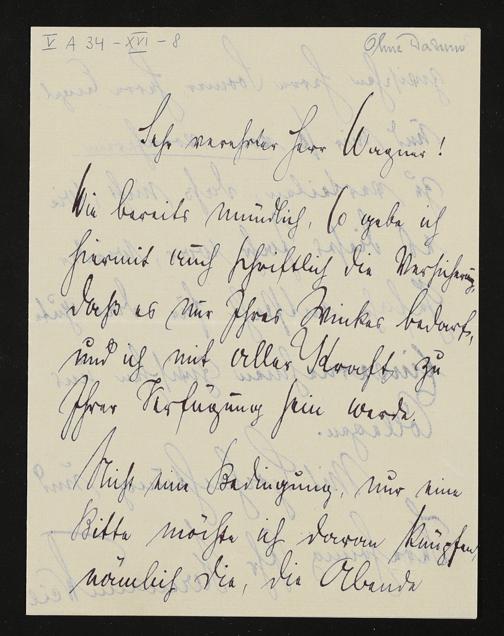 V A 34 - XVI - 8
Ohne Datum
Sehr verehrter Herr Wagner!
Wie bereits mündlich, so gebe ich
hiermit auch schriftlich die Versicherung,
daß es nur Ihres Winkes bedarf,
und ich mit aller Kraft zu
Ihrer Verfügung sein werde.
Nicht eine Bedingung, nur eine
Bitte möchte ich daran knüpfen,
nämlich die, die Abende